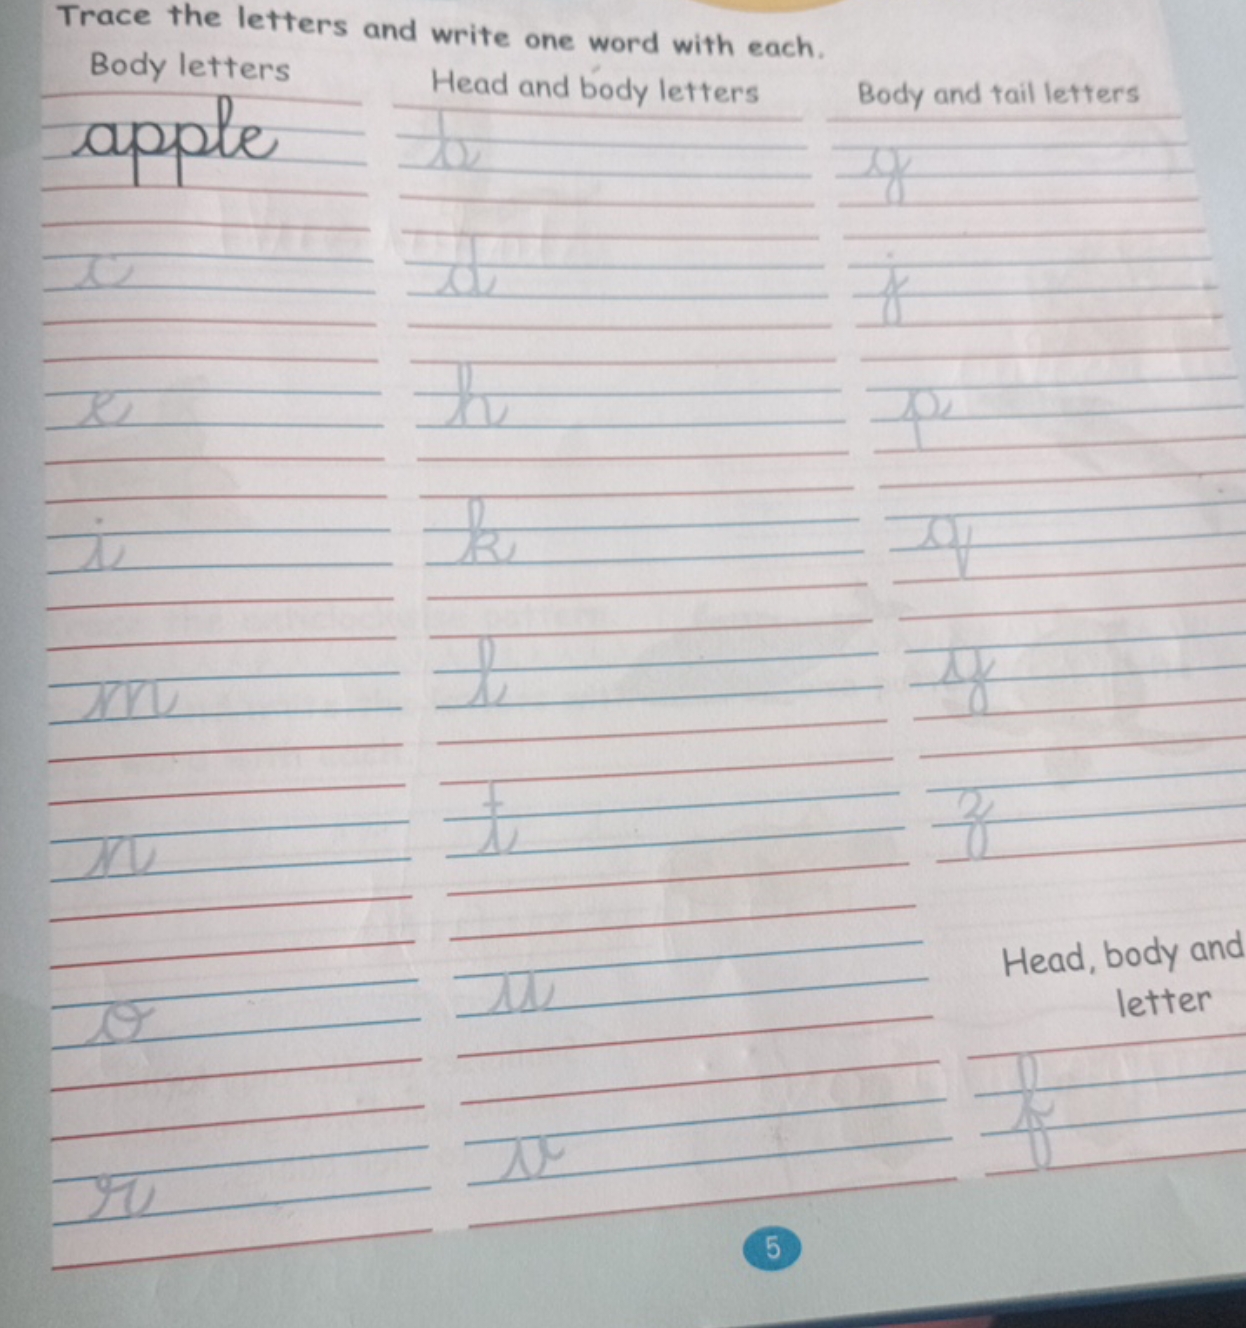 Trace the letters and write one word with each.
Body letters
Head and body letters
Body and tail letters
apple
b
g
c
d
j
e
h
p
i
k
q
m
l
y
n
t
z
o
u
Head, body and
letter
r
v
f
5